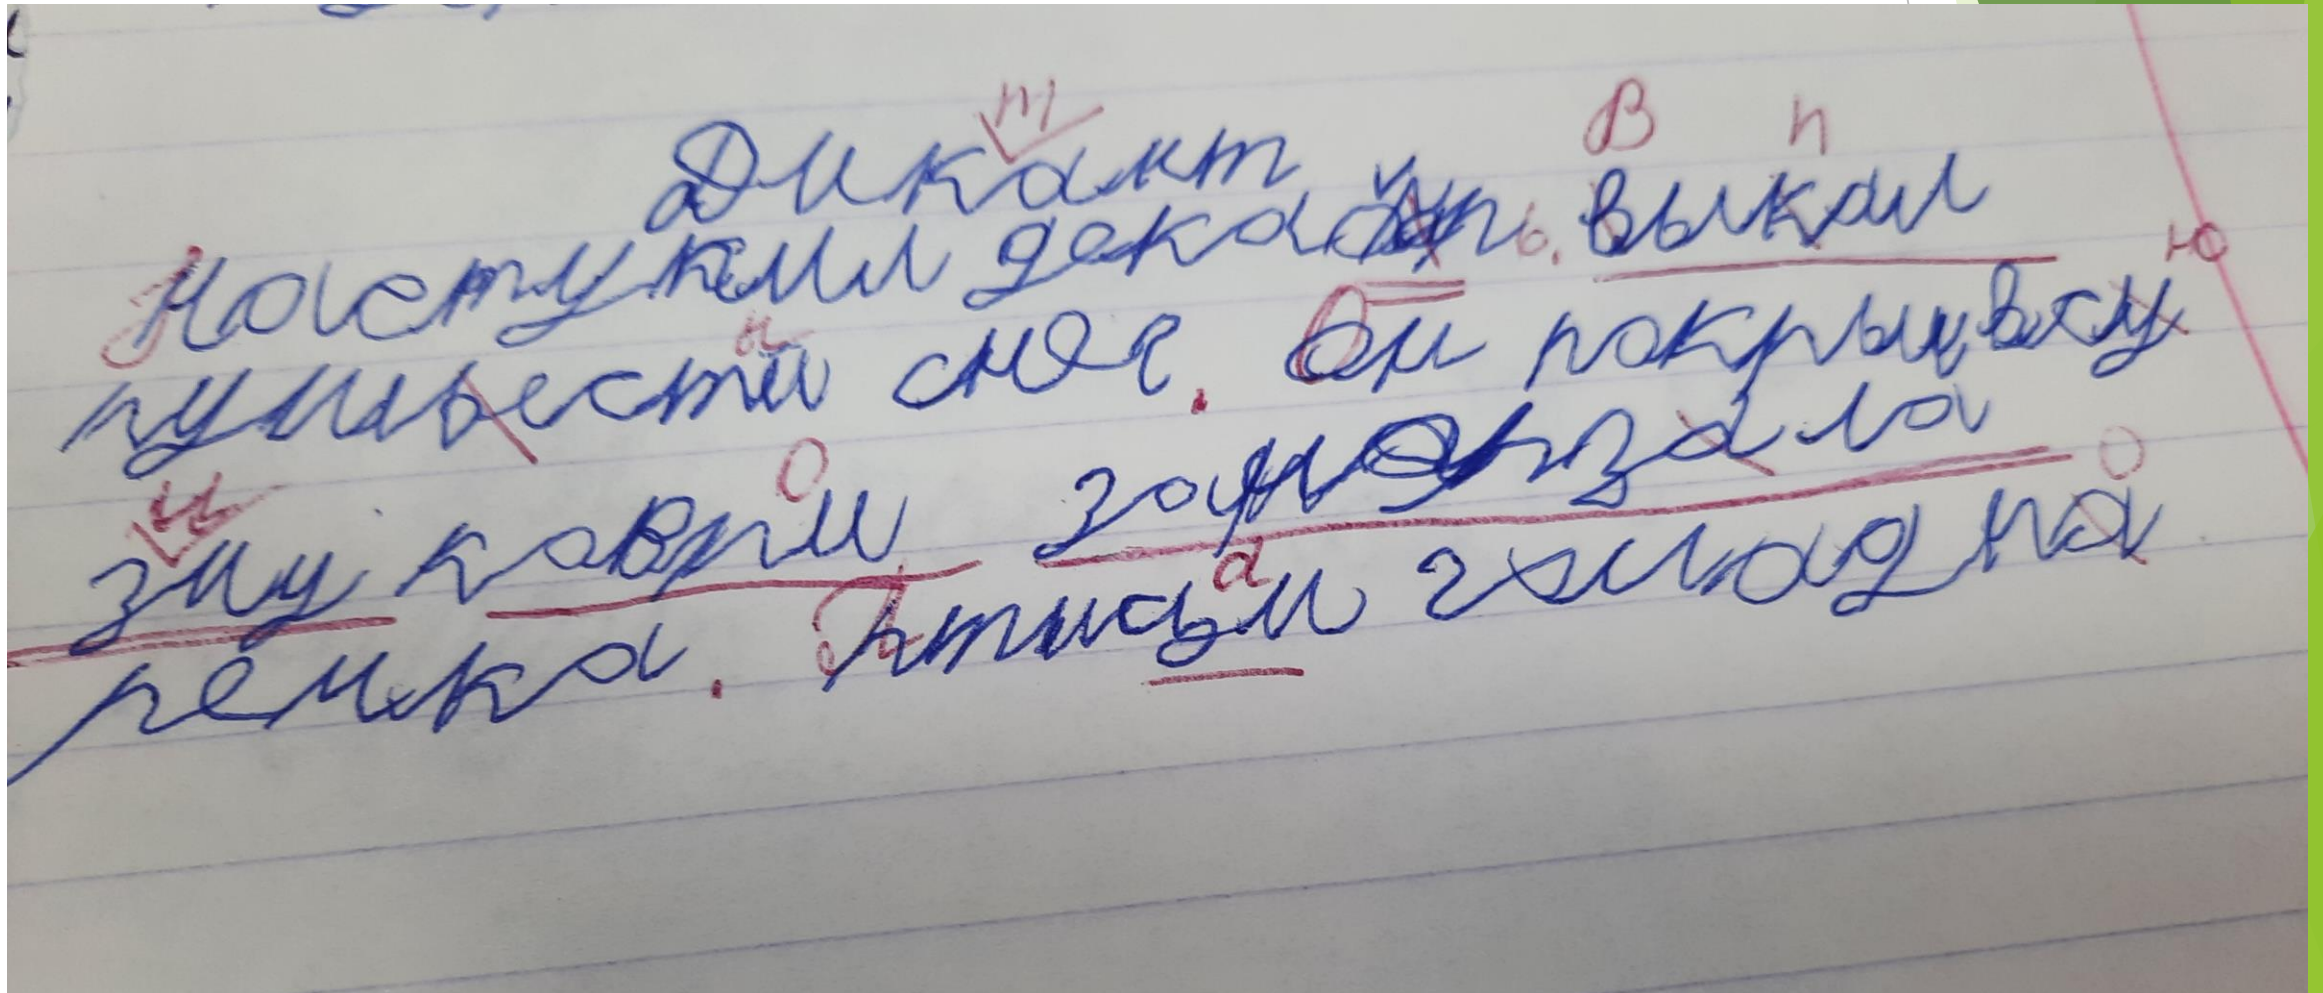 Дикант
Настукил декабрь. выкал
пушьестй снег. Он покрыл всу
зму коври замерзала
речка. Птицы гхлад на